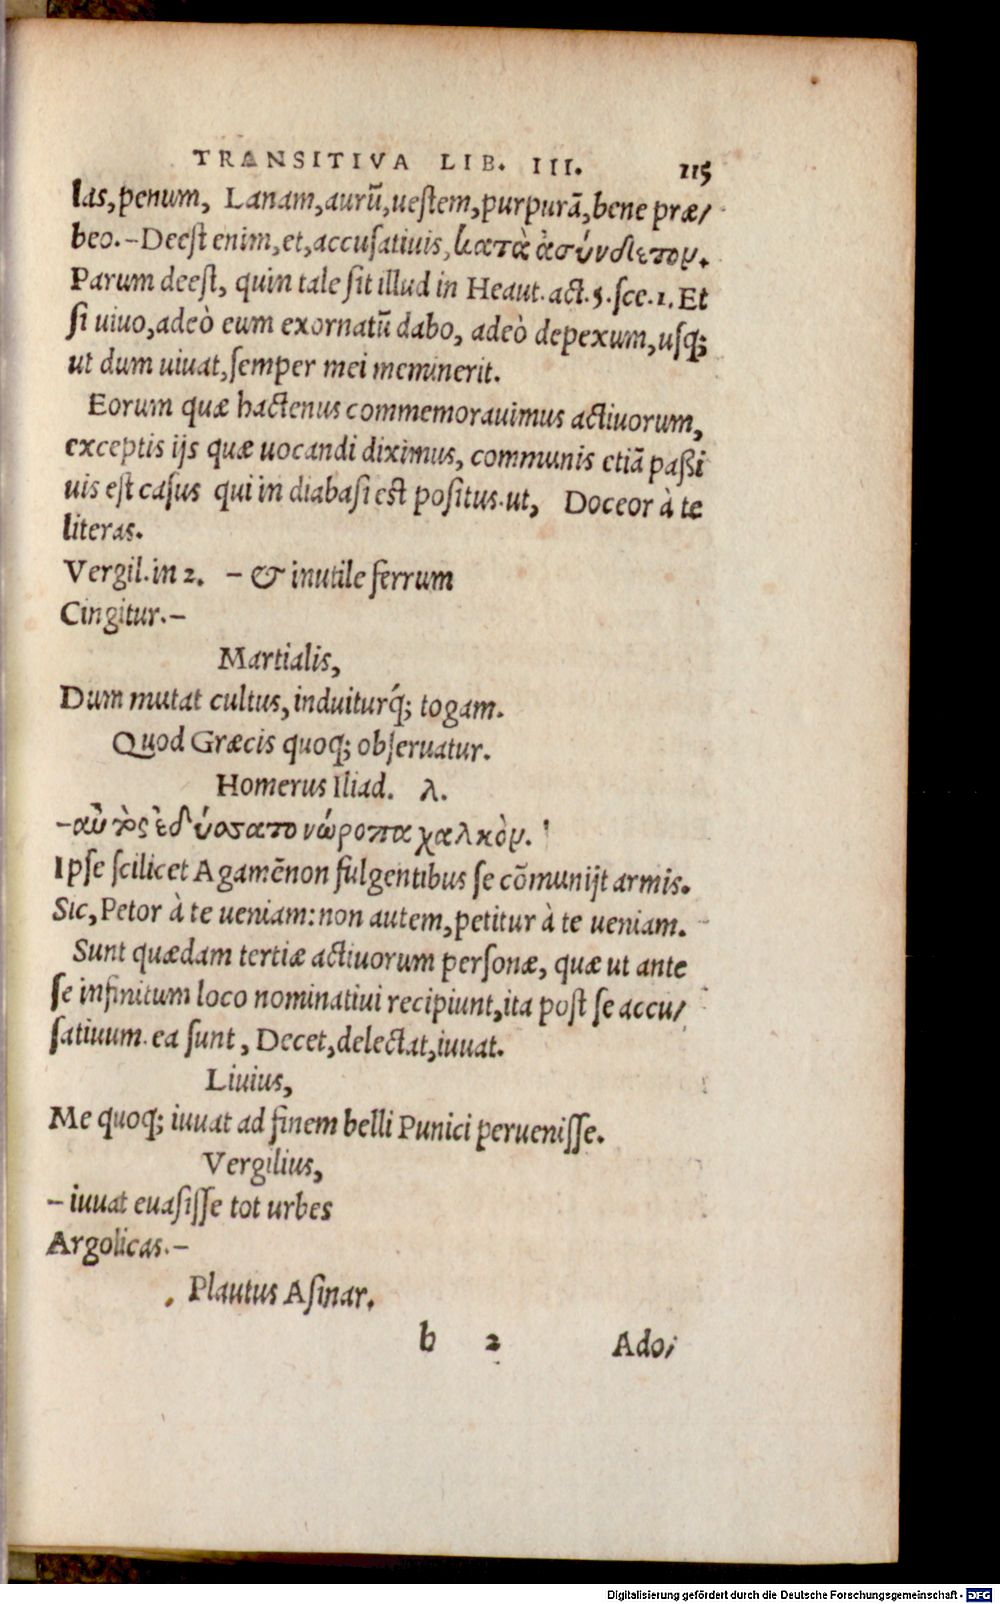 TRANSITIVA LIB. III. 115
las, penum, Lanam, aurũ, ueſtem, purpurã, bene præ/
beo.-Deeſt enim, et, accuſatiuis, κατὰ ἀσύνδετον.
Parum deeſt, quin tale ſit illud in Heaut. act. 5. ſce. 1. Et
ſi uiuo, adeò eum exornatũ dabo, adeò depexum, uſq;
ut dum uiuat, ſemper mei meminerit.
Eorum quæ hactenus commemorauimus actiuorum,
exceptis ijs quæ uocandi diximus, communis etiã paßi
uis eſt caſus qui in diabaſi eſt poſitus. ut, Doceor à te
literas.
Vergil. in 2. - & inutile ferrum
Cingitur.-
Martialis,
Dum mutat cultus, induiturq́; togam.
Quod Græcis quoq; obſeruatur.
Homerus Iliad. λ.
-αὐτὸς ἐδύσατο νώροπα χαλκὸν.
Ipſe ſcilicet Agamẽnon fulgentibus ſe cõmunijt armis.
Sic, Petor à te ueniam: non autem, petitur à te ueniam.
Sunt quædam tertiæ actiuorum perſonæ, quæ ut ante
ſe infinitum loco nominatiui recipiunt, ita poſt ſe accu/
ſatiuum. ea ſunt, Decet, delectat, iuuat.
Liuius,
Me quoq; iuuat ad finem belli Punici perueniſſe.
Vergilius,
- iuuat euaſiſſe tot urbes
Argolicas.-
Plautus Aſinar.
b 2 Ado/
Digitalisierung gefördert durch die Deutsche Forschungsgemeinschaft - DFG